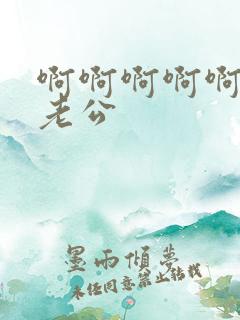 啊啊啊啊啊
老公
墨雨倾梦
未经同意禁止转载